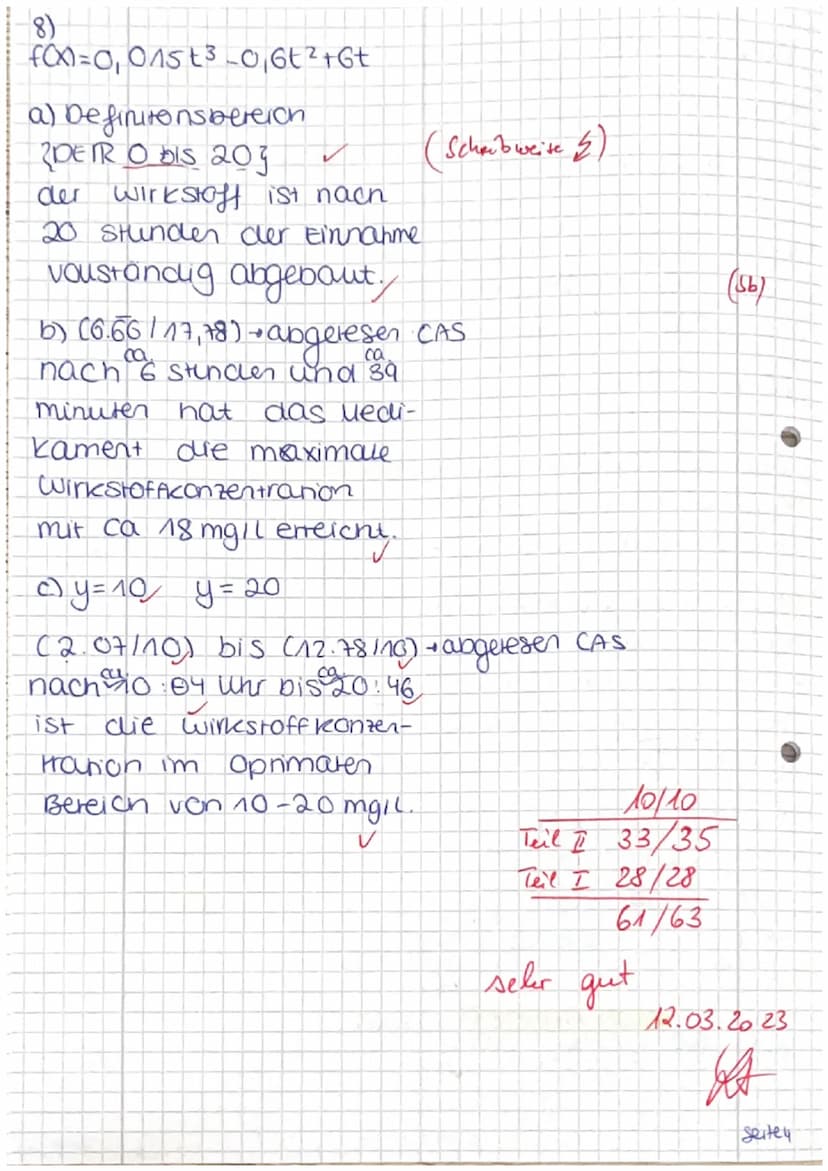 8)
f(x)=0,015t³-0,6t²+6t
a) Definitonsbereich
{DEIR 0 bis 20} ✓ (Schreibweise ↯)
der Wirkstoff ist nach
20 Stunden der Einnahme
vollständig abgebaut. ✓
(5b)
b) (6.66̅/17,78)→abgelesen CAS
nach ca 6 stunden und ca 39
minuten hat das Medi-
kament die maximale
Wirkstoffkonzentration
mit ca 18 mg/l erreicht. ✓
c) y=10 ✓ y=20
(2.07/10) bis (12.78/10)→abgelesen CAS
nach ca 10:04 Uhr bis ca 20:46
ist die Wirkstoffkonzen-
tration im Optimalen
Bereich von 10-20 mg/l. ✓
10/10
Teil II 33/35
Teil I 28/28
61/63
sehr gut
12.03.2023
Seite 4